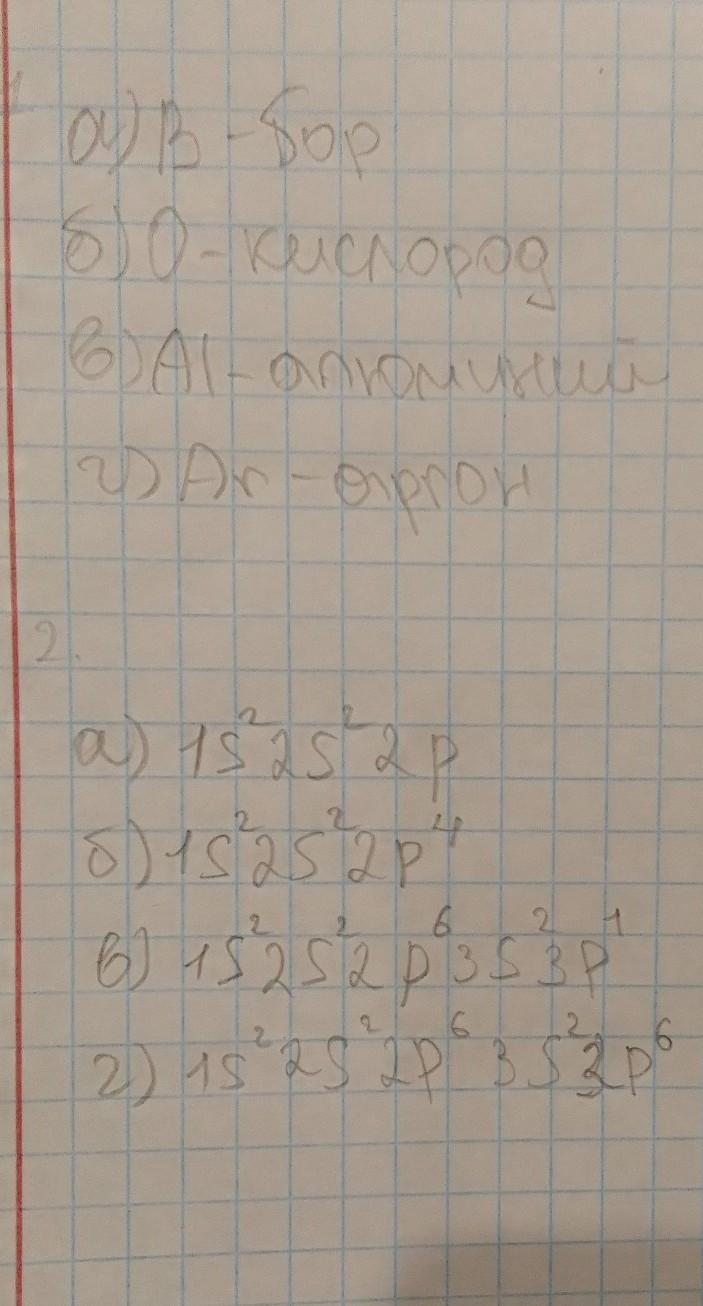 1
а) B - бор
б) O - кислород
в) Al - алюминий
г) Ar - аргон
2.
а) 1s²2s²2p
б) 1s²2s²2p⁴
в) 1s²2s²2p⁶3s²3p¹
г) 1s²2s²2p⁶3s²3p⁶